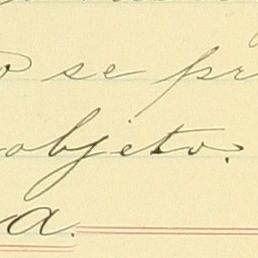 o se pr
objeto.
a.